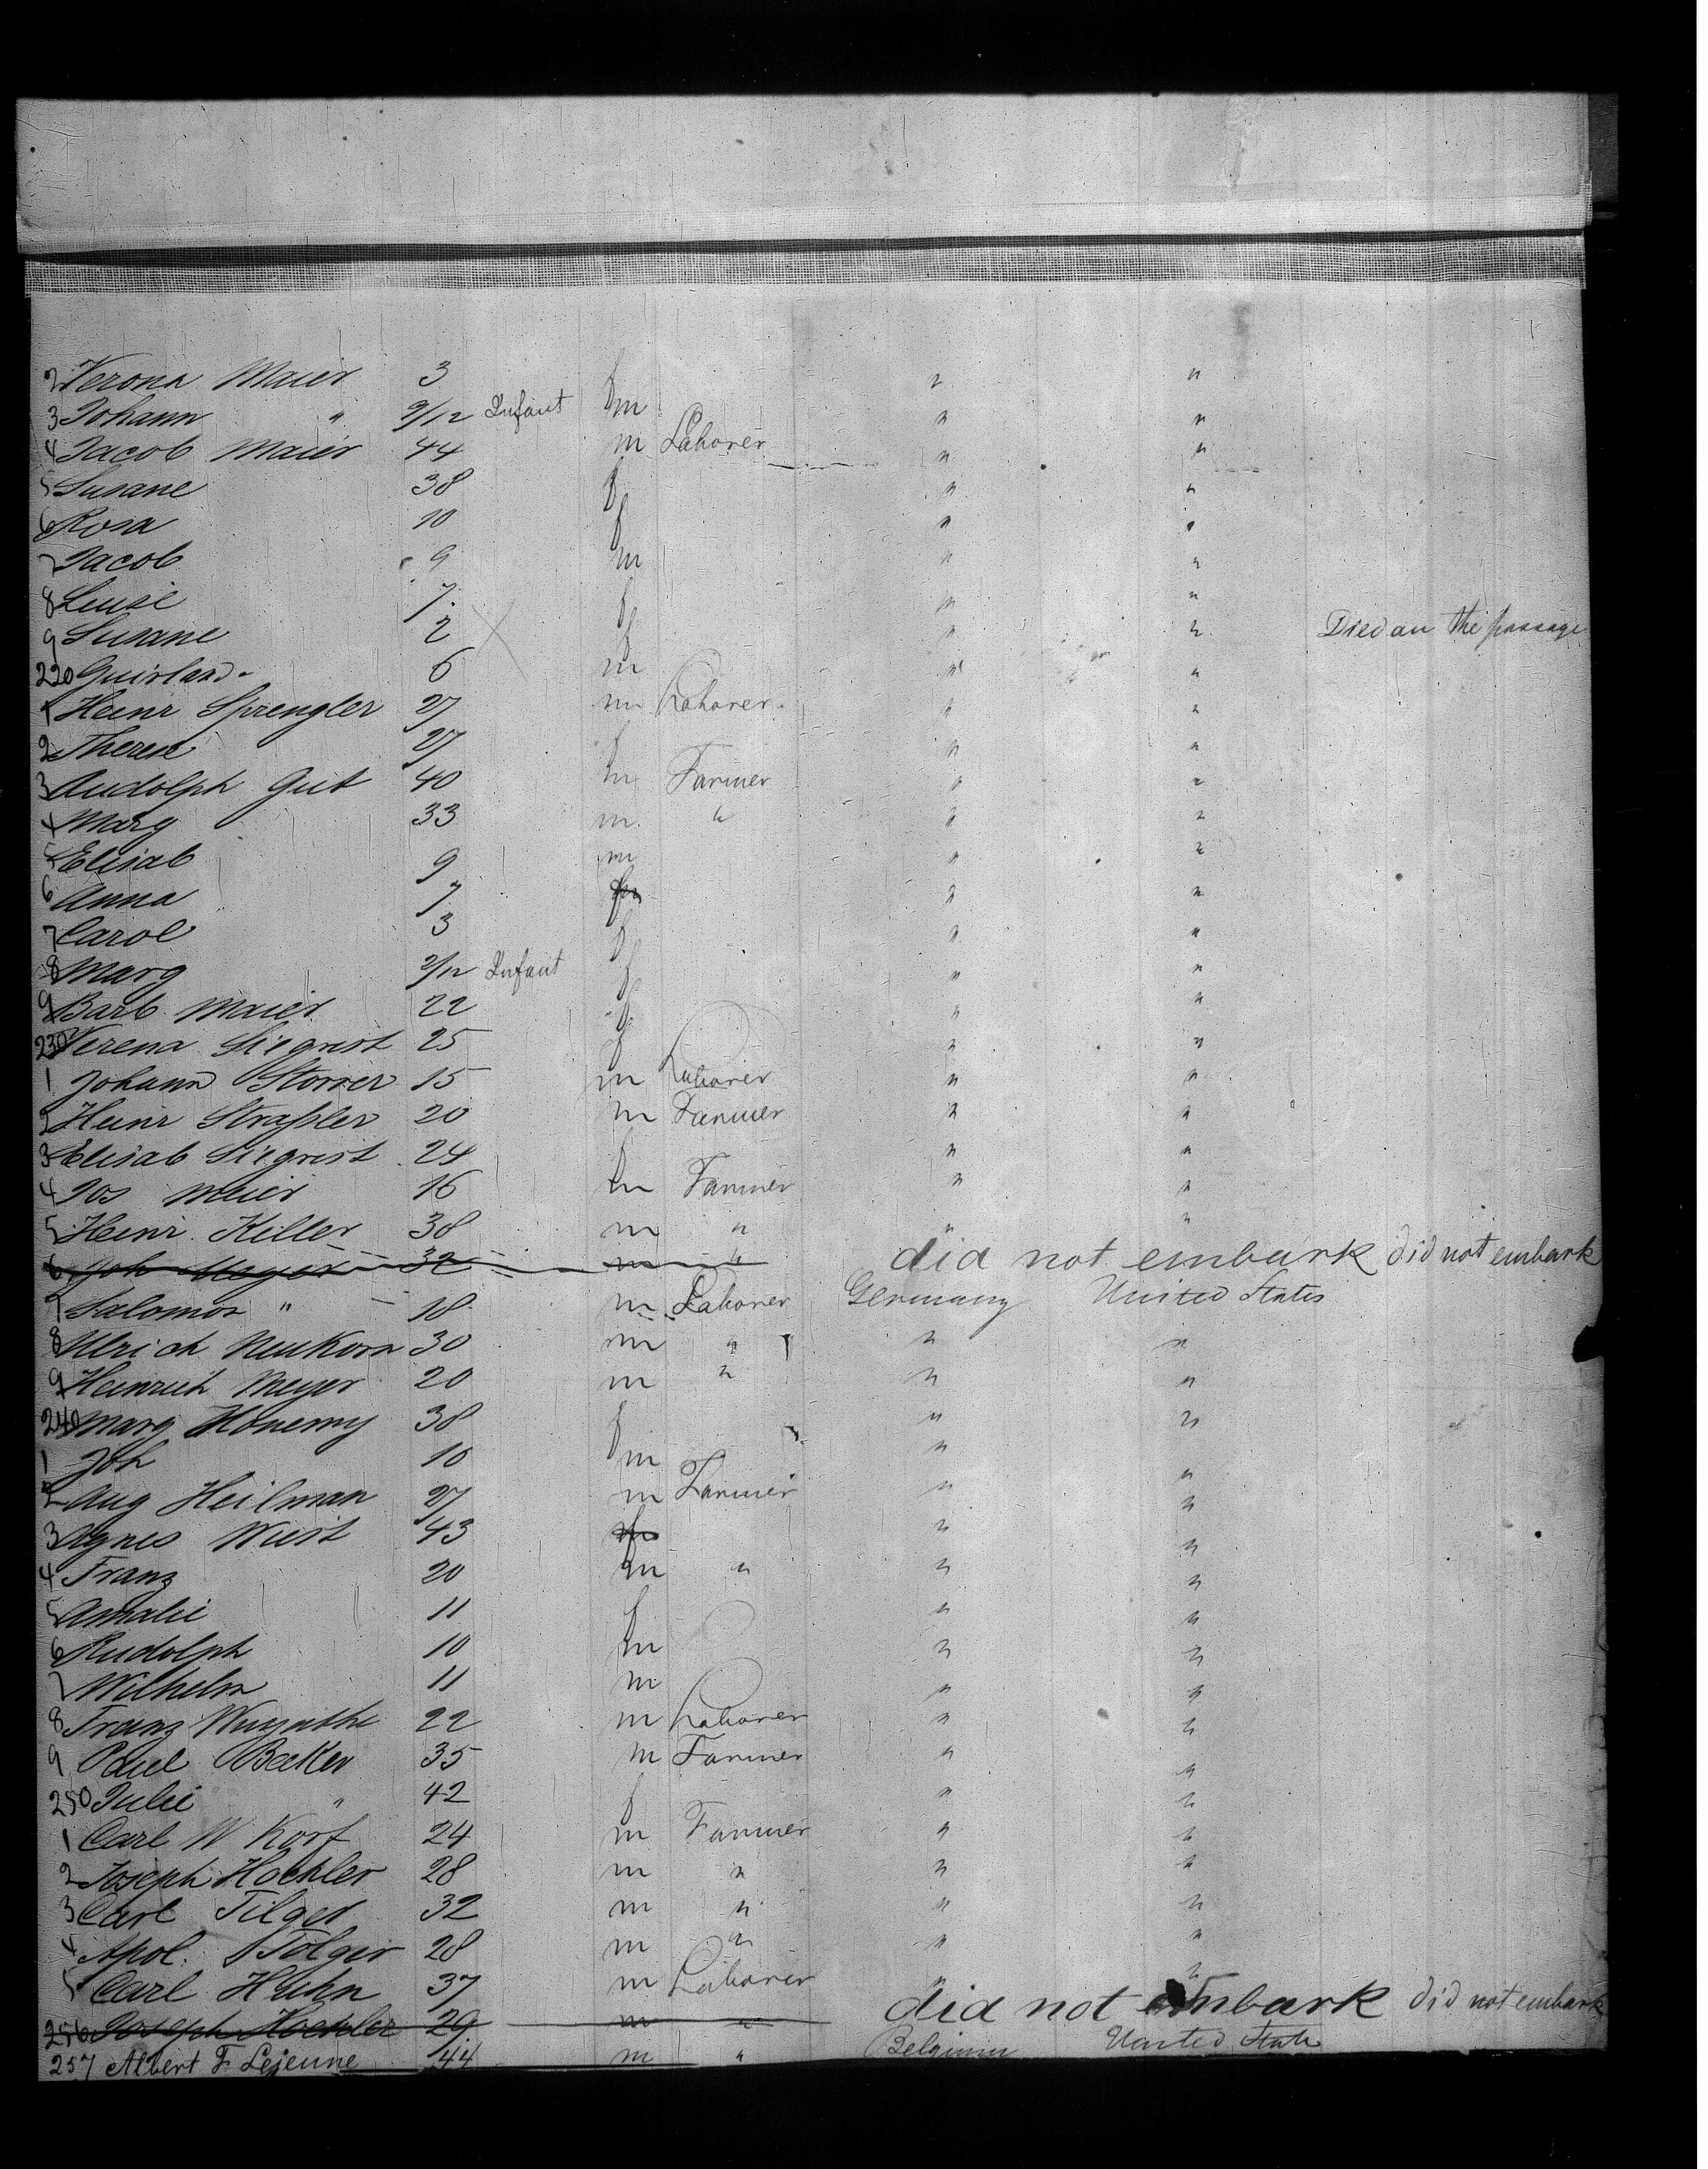 2 Verona Maier 3 f " "
3 Johann " 9/12 Infant m " "
4 Jacob Maier 44 m Laborer " "
5 Susane 38 f " "
6 Rosa 10 f " "
7 Jacob 9 m " "
8 Luise 7 f " "
9 Susane 2 f " " Died on the passage
220 6 m " "
1 Heinr Sprengler 27 m Laborer " "
2 Therese 27 f " "
3 Rudolph Gut 40 m Farmer " "
4 Marg 33 m " " "
5 Elisab 9 m " "
6 Anna 7 " "
7 Carol 3 f " "
8 Marg 9/12 Infant f " "
9 Barb Maier 22 f " "
230 Verena Siegrist 25 f " "
1 Johann Storrer 15 m Laborer " "
2 Heinr Straßler 20 m Farmer " "
3 Elisab Siegrist 24 f " "
4 Jos Meier 16 m Farmer " "
5 Heinr. Killer 38 m " " "
6 Joh Meyer 32 m " did not embark did not embark
7 Salomon " 18 m Laborer Germany United States
8 Ulrich Neukorn 30 m " " "
9 Heinrich Meyer 20 m " " "
240 Marg Honemy 38 f " "
1 Joh 10 m " "
2 Aug Heilman 27 m Farmer " "
3 Agnes Wiest 43 f " "
4 Franz 20 m " " "
5 Amalie 11 f " "
6 Rudolph 10 m " "
7 Wilhelm 11 m " "
8 Franz 22 m Laborer " "
9 Paul Becker 35 m Farmer " "
250 Julie " 42 f " "
1 Carl W Korf 24 m Farmer " "
2 Joseph Hoehler 28 m " " "
3 Carl Tilger 32 m " " "
4 Apol. Tolger 28 m " " "
5 Carl Huhn 37 m Laborer " "
256 Joseph Hoehler 29 m " did not embark did not embark
257 Albert F. Lejeune 44 m " Belgium United State